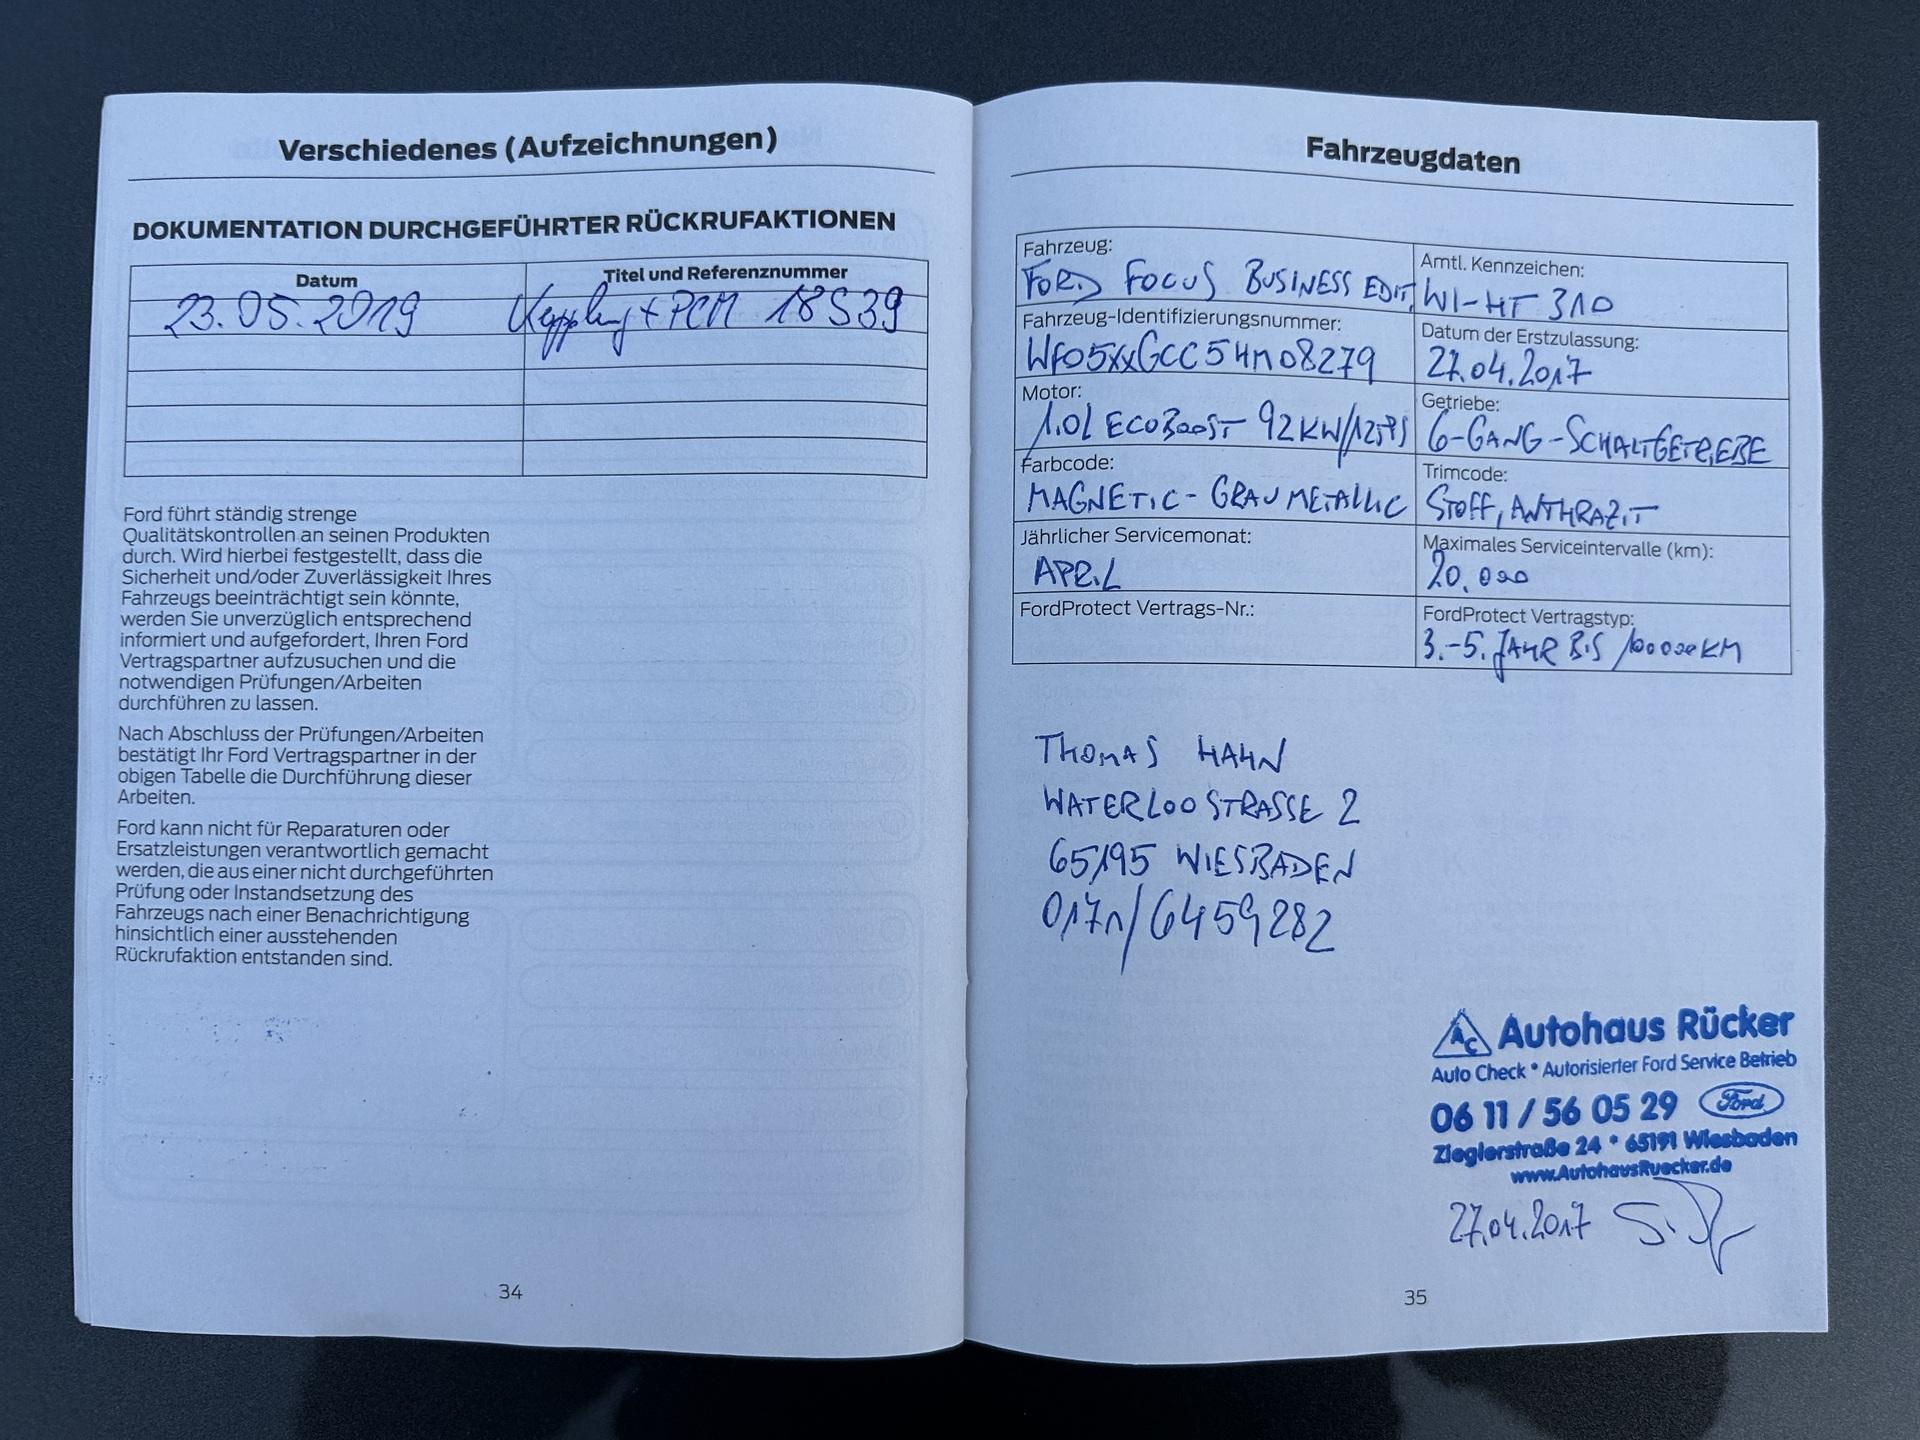 Verschiedenes (Aufzeichnungen)
DOKUMENTATION DURCHGEFÜHRTER RÜCKRUFAKTIONEN
Datum Titel und Referenznummer
23.05.2019 + PCM 18S39
Ford führt ständig strenge
Qualitätskontrollen an seinen Produkten
durch. Wird hierbei festgestellt, dass die
Sicherheit und/oder Zuverlässigkeit Ihres
Fahrzeugs beeinträchtigt sein könnte,
werden Sie unverzüglich entsprechend
informiert und aufgefordert, Ihren Ford
Vertragspartner aufzusuchen und die
notwendigen Prüfungen/Arbeiten
durchführen zu lassen.
Nach Abschluss der Prüfungen/Arbeiten
bestätigt Ihr Ford Vertragspartner in der
obigen Tabelle die Durchführung dieser
Arbeiten.
Ford kann nicht für Reparaturen oder
Ersatzleistungen verantwortlich gemacht
werden, die aus einer nicht durchgeführten
Prüfung oder Instandsetzung des
Fahrzeugs nach einer Benachrichtigung
hinsichtlich einer ausstehenden
Rückrufaktion entstanden sind.
34
Fahrzeugdaten
Fahrzeug: Amtl. Kennzeichen:
FORD FOCUS BUSINESS EDIT. WI-HT 310
Fahrzeug-Identifizierungsnummer: Datum der Erstzulassung:
WF05XXGCC5HM08279 27.04.2017
Motor: Getriebe:
1.0l ECOBOOST 92KW/125PS 6-GANG-SCHALTGETRIEBE
Farbcode: Trimcode:
MAGNETIC-GRAU METALLIC STOFF, ANTHRAZIT
Jährlicher Servicemonat: Maximales Serviceintervalle (km):
APRIL 20.000
FordProtect Vertrags-Nr.: FordProtect Vertragstyp:
3.-5. JAHR BIS 100000KM
THOMAS HAHN
WATERLOOSTRASSE 2
65195 WIESBADEN
0171/6459282
AC Autohaus Rücker
Auto Check * Autorisierter Ford Service Betrieb
06 11 / 56 05 29 Ford
Zieglerstraße 24 * 65191 Wiesbaden
www.AutohausRuecker.de
27.04.2017
35